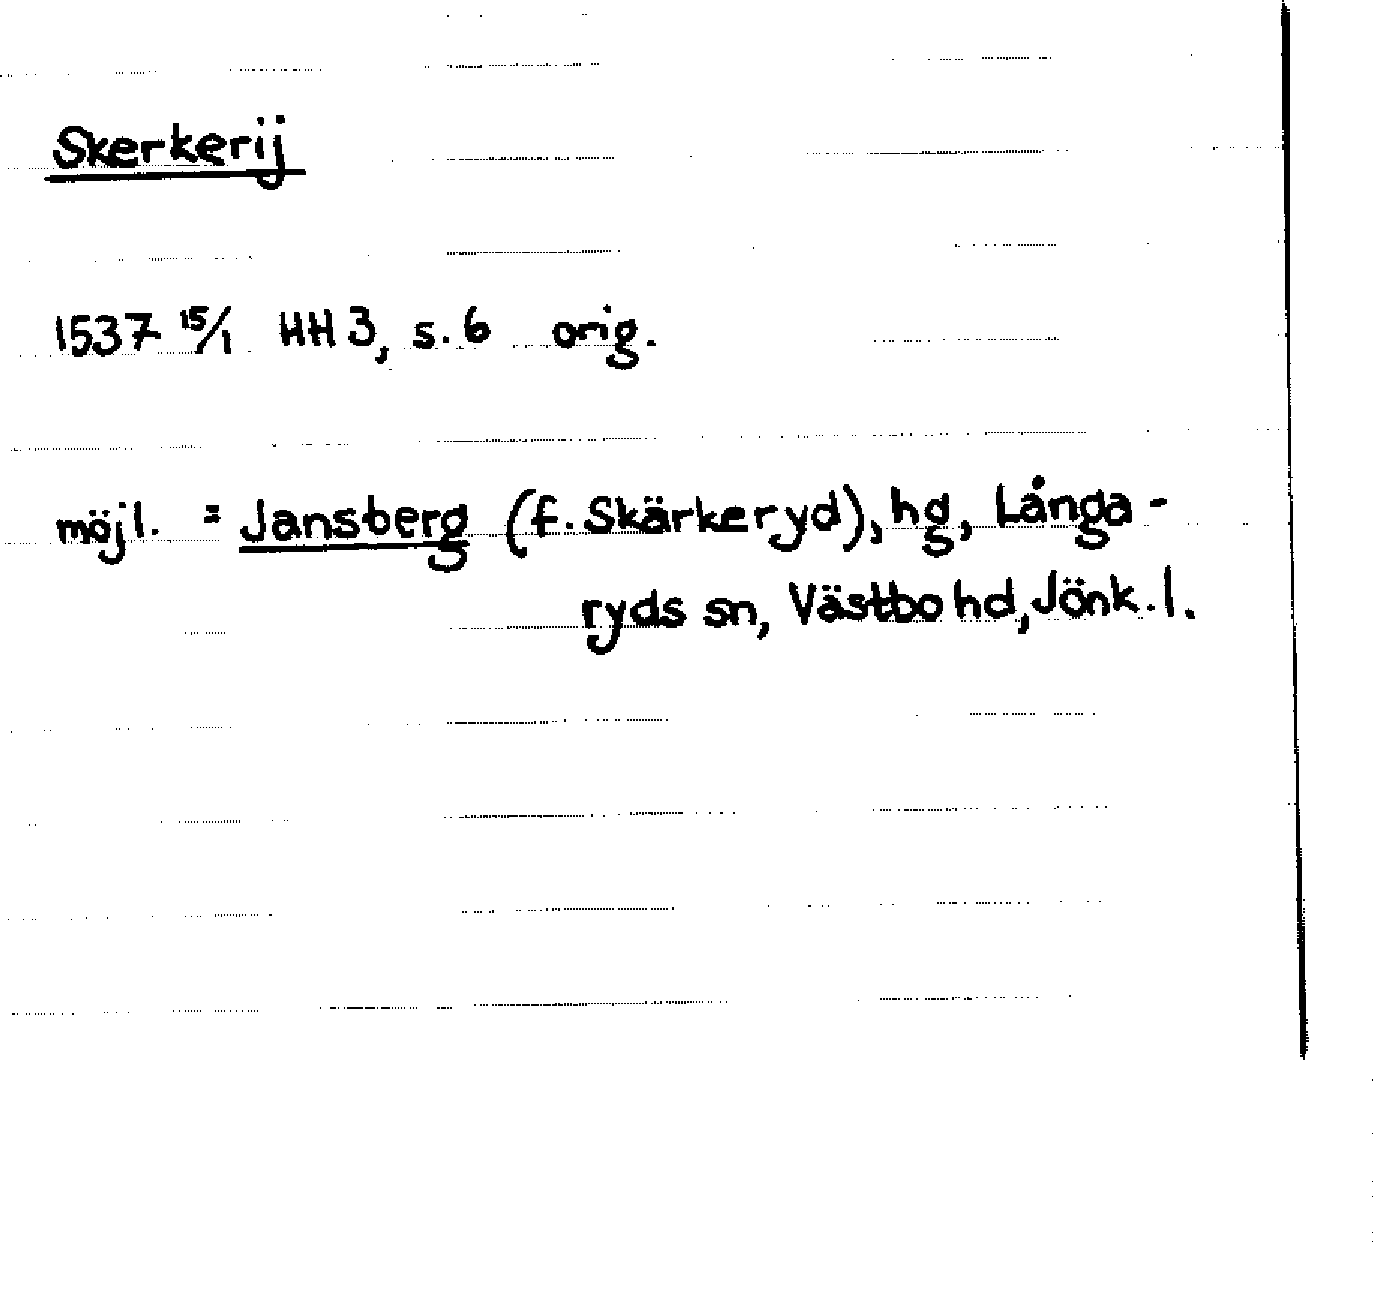 Skerkerij
1537 15/1 HH 3, s. 6 orig.
möjl. = Jansberg (f. Skärkeryd), hg, Långa-
ryds sn, Västbo hd, Jönk. l.